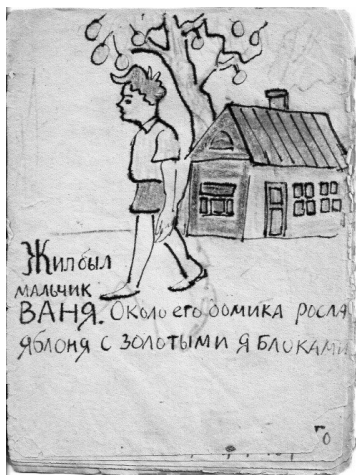 Жил был
мальчик
ВАНЯ. Около его домика росла
яблоня с золотыми яблоками